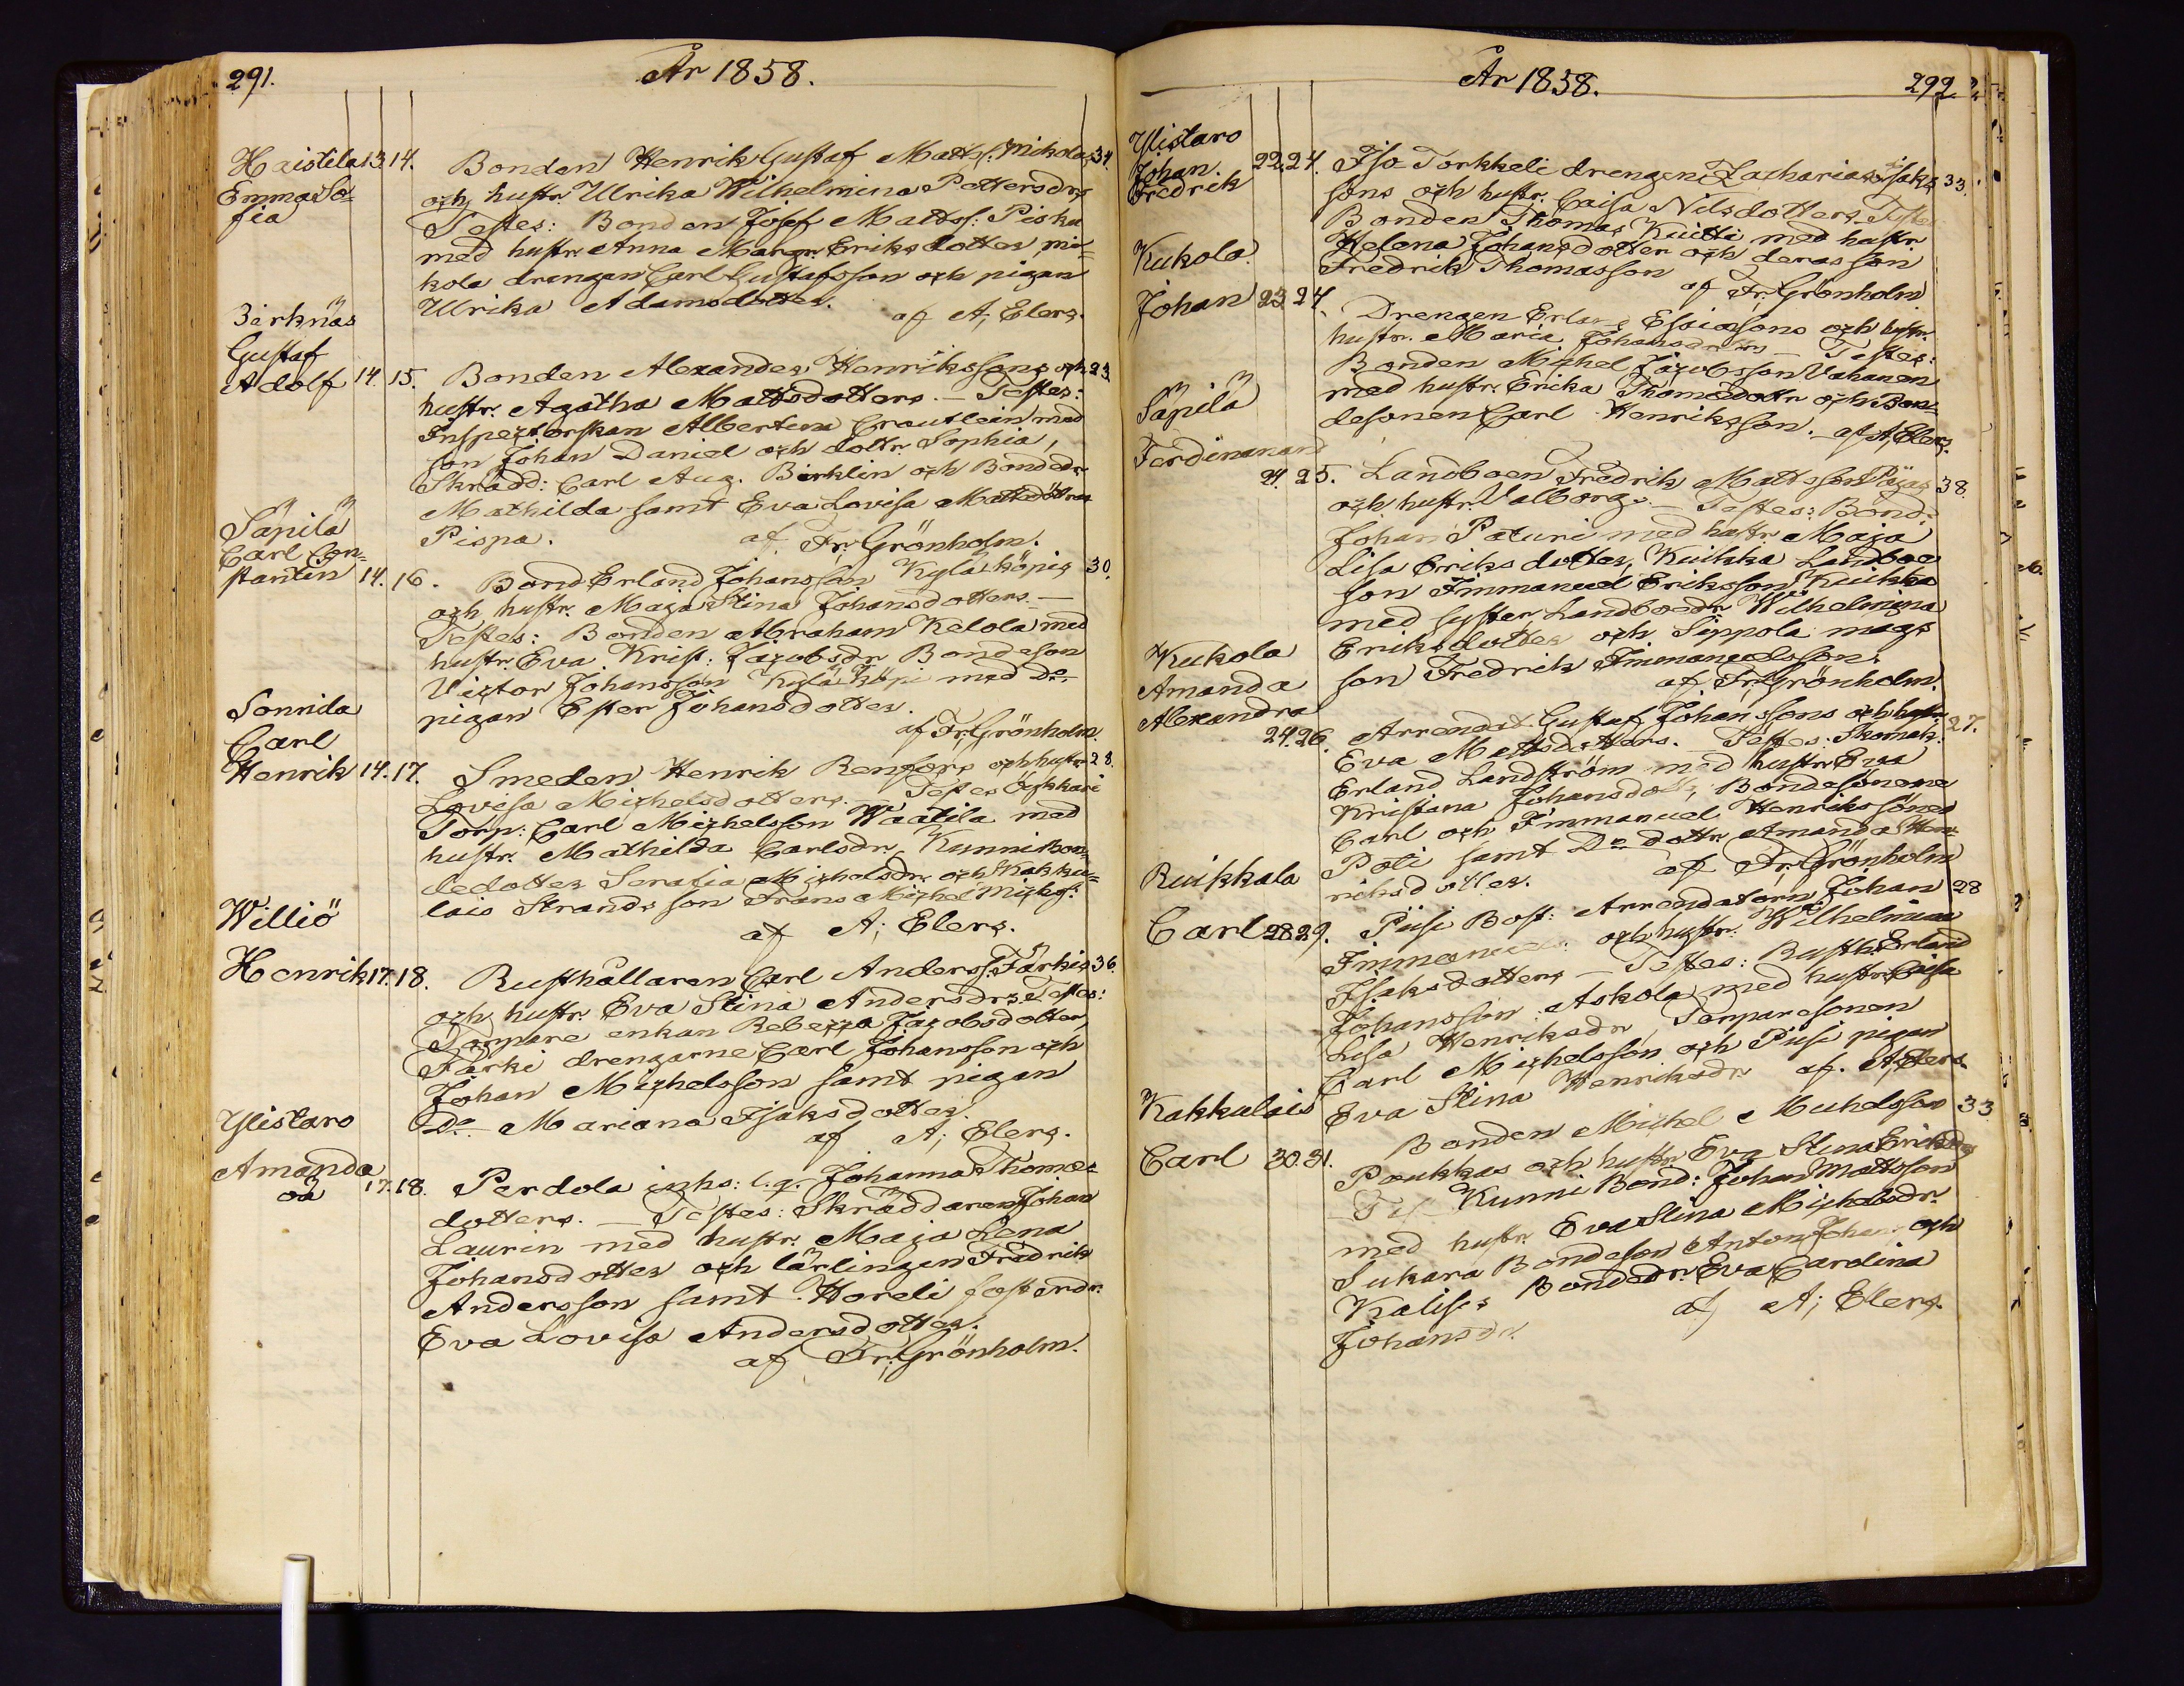 291.
År 1858.
Haistila 13. 14. Bonden Henrik Gustaf Mattss: Mikolas 34.
Emma So=
fia
och hustr. Ulrika Wilhelmina Pettersdrs
Testes: Bonden Josef Mattss: Pisku
med hustr. Anna Margr. Eriksdotter, mi=
kola drengen Carl Gustafsson och pigan
Ulrika Adamsdotter.
af A; Elers.
Birknäs
Gustaf
Adolf 14. 15. Bonden Alexander Henrikssons och 23.
hustr. Agatha Mattsdotters. — Testes:
Inspectorskan Albertina Crautlein med
son Johan Daniel och dottr. Sophia,
Skrädd: Carl Aug. Birklin och Bondedr.
Mathilda samt Eva Lovisa Mattsdöttrar
Pispa.
af Fr; Grönholm.
Säpilä
Carl Con=
stantin 14. 16. Bond. Erland Johansson Kyläköpis 30.
och hustr. Maja Stina Johansdotters. —
Testes: Bonden Abraham Kelola med
hustr. Eva Krist: Jacobsdr. Bondeson
Victor Johansson Kyläköpi med Do
pigan Ester Johansdotter.
af Fr; Grönholm.
Sonnila
Carl
Henrik 14. 17. Smeden Henrik Renfors och hustr. 28.
Lovisa Michelsdotters. Testes
Torp: Carl Michelsson Waatila med
hustr. Mathilda Carlsdr, Kunni Bon=
dedotter Serafia Michelsdr. och Kakku=
lais Strands son Frans Michel Michs:
af A; Elers.
Williö
Henrik 17. 18. Rusthållaren Carl Anderss: Färkis 36.
och hustr. Eva Stina Andersdrs. Testes:
Torpare enkan Rebecca Jacobsdotter,
Färki drengarne Carl Johansson och
Johan Michelsson samt pigan
Do Mariana Isaksdotter.
af A; Elers.
Ylistaro
Amanda
oä 17. 18. Perdola inhs: l.q. Johanna Thomas
dotters. — Testes: Skräddaren Johan
Laurin med hustr. Maja Lena
Johansdotter och lärlingen Fredrik
Andersson samt Horeli fosterdr.
Eva Lovisa Andersdotter.
af Fr; Grönholm.
År 1858.
292.
Ylistaro
Johan 22. 24. Iso Torkkeli drengens Zacharias Isaks 33.
Fredrik
sons och hustr. Caisa Nilsdotters. Testes
Bonden Thomas Kuitti med hustr.
Helena Johansdotter och deras son
Fredrik Thomasson
af Fr; Grönholm
Kukola
Johan 23. 24. Drengen Erland Esaiassons och
hustr. Maria Johansdrs — Testes:
Bonden Michel Jacobsson Vahanen
med hustr. Erika Thomædotr och Bon=
desonen Carl Henriksson. af A; Elers.
Säpilä
Ferdinanand
24. 25. Landboen Fredrik Mattsson 38.
och hustr. Valborgs. — Testes: Bond:
Johan Paturi med hustr. Maja
Lisa Eriksdotter, Kuikka Landboe
son Immanuel Eriksson Kuikka
med syster Landboedr. Wilhelmina
Eriksdotter och Sippola mags
son Fredrik Immanuelsson.
af Fr; Grönholm.
Kukola
Amanda
Alexandra
24. 26. Arrendat. Gustaf Johanssons och hustr 27.
Eva Mattsdotters. — Testes: Skomak:
Erland Landström med hustr. Eva
Kristina Johansdotter, Bondesönerne
Carl och Immanuel Henrikssöner
Poti samt Do dottr. Amanda Hen
riksdotter.
af Fr; Grönholm
Ruikkala
Carl 28. 29. Piisi Bost: Arrendatorn Johan 28
och hustr. Wilhelmina
Isaksdotters — Testes: Rusth. Erland
Johansson Askola med hustr. Caisa
Lisa Henriksdr, Torparesonen
Carl Michelsson och Piisi pigan
Eva Stina Henriksdr af. A; Elers
Kakkulais
Carl 30. 31. Bonden Michel Michelsson 33
Poukkas och hustr. Eva Stina Eriksdrs
Kunni Bond: Johan Mattsson
med hustr. Eva Stina Michelsdr.
Sukara Bondeson Anton Johans och
Kalises Bondedr. Eva Carolina
Johansdr.
af A; Elers.